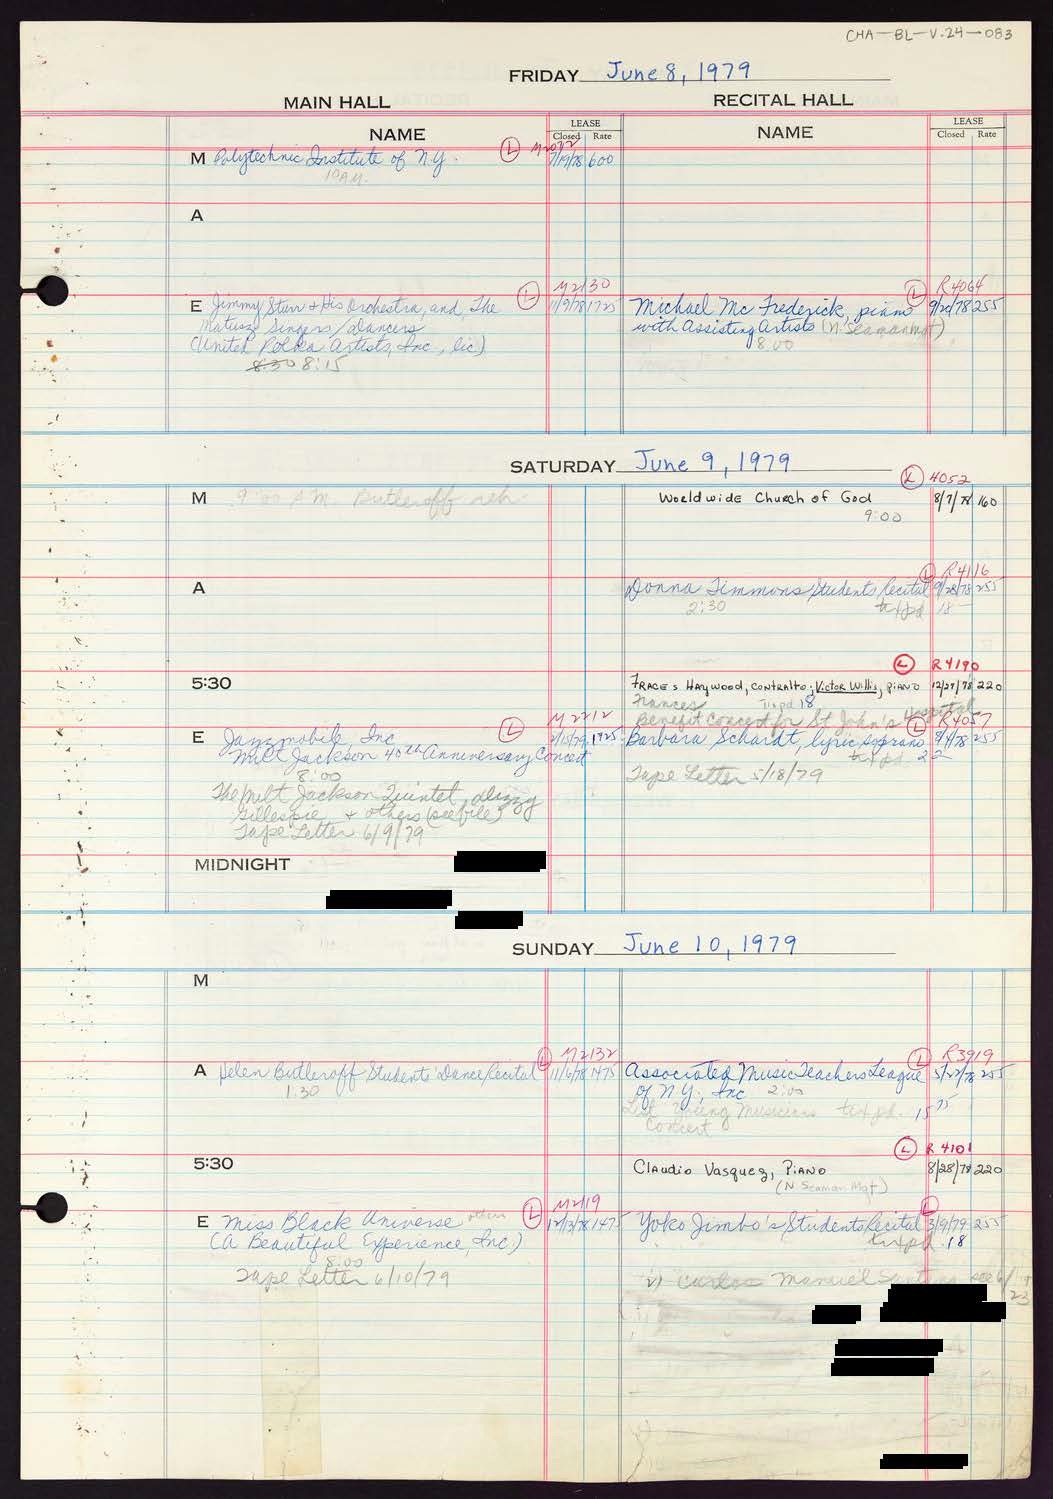 CHA-BL-V.24-083
FRIDAY June 8, 1979
MAIN HALL
RECITAL HALL
NAME
LEASE
Closed Rate
NAME
LEASE
Closed Rate
M Polytechnic Institute of N.Y. L M2072 7/19/78 600
10 A.M.
A
E Jimmy Sturr & His Orchestra, and, The L M2130 11/9/78 1725
Matusz Singers/Dancers
(United Polka Artists, Inc., lic)
8:30 8:15
Michael Mc Frederick, piano L R4064 255
with Assisting Artists (N. Seaman Mgt)
8:00
SATURDAY June 9, 1979
M 9:00 AM Butleroff reh.
Worldwide Church of God L 4052 8/7/78 160
9:00
A
Donna Timmons Students Recital L R4116 9/28/78 255
2:30 txpd 18 —
5:30
Fraces Haywood, contralto; Victor Willis, piano L R4190 12/27/78 220
Frances txpd 18
Benefit Concert for St John's Hospital
E Jazzmobile Inc L M2212 2/15/79 1725
Milt Jackson 40th Anniversary Concert
8:00
The Milt Jackson Quintet, Dizzy
Gillespie & others (see file)
Tape Letter 6/9/79
Barbara Schardt, lyric soprano L R4057 255
txpd 22
Tape Letter 5/18/79
MIDNIGHT
SUNDAY June 10, 1979
M
A Helen Butleroff Students' Dance Recital L M2132 11/6/78 1475
1:30
Associated Music Teachers League L R3919 5/22/78 255
of N.Y., Inc 2:00
List Young Musicians txpd. 15 75
Concert
5:30
Claudio Vasquez, Piano L R4101 8/28/78 220
(N Seaman Mgt)
E Miss Black Universe L M2119 12/13/78 1475
(A Beautiful Experience, Inc)
8:00
Tape Letter 6/10/79
Yoko Jimbo's Students Recital L 3/9/79 255
txpd. 18
2) Carlos Manuel see 6/
23